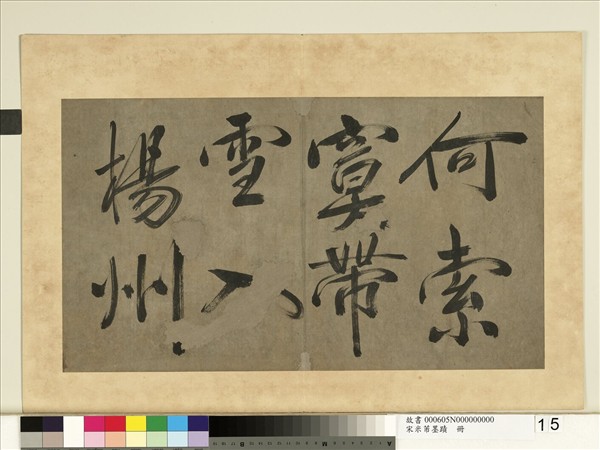 何索
寞帶
雪入
楊州
故書 000605N000000000
宋米芾墨蹟 冊
15